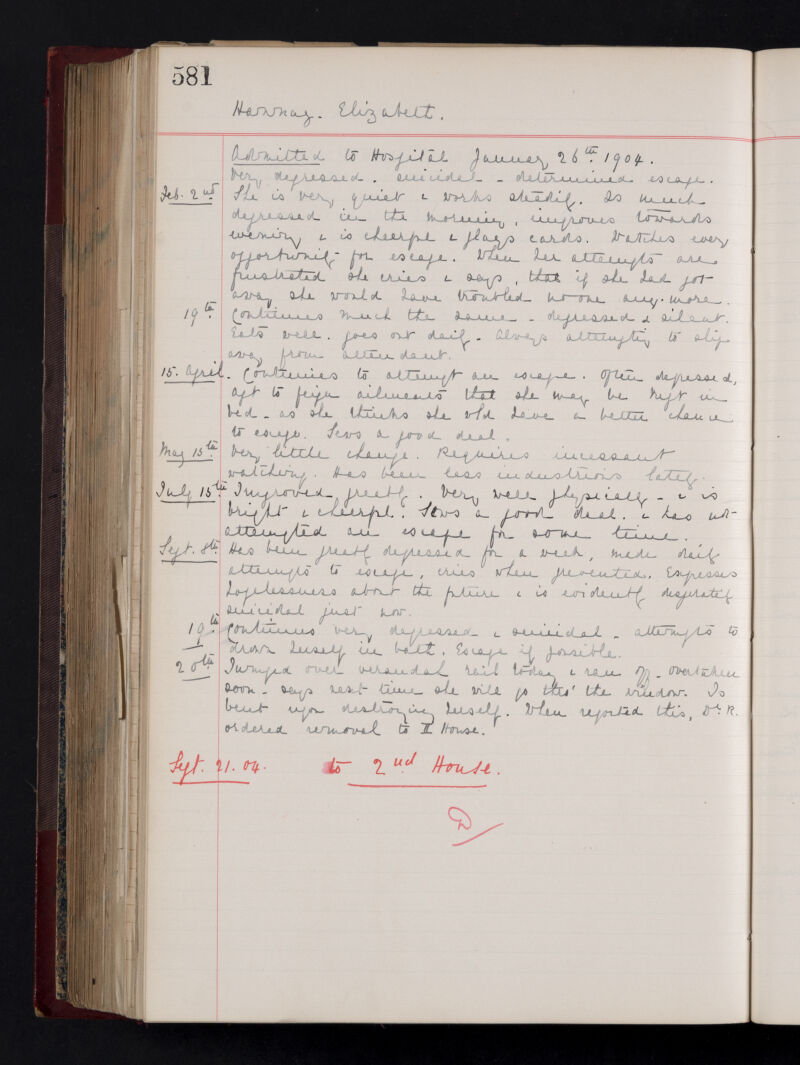 581
Hannay. Elizabeth.
Admitted to Hospital January 26th 1904.
Very depressed. suicidal - determined escape.
Feb. 2nd She is very quiet & works steadily. Is much
depressed in the morning, improves towards
evening & is cheerful & plays cards. Watches every
opportunity for escape. When her attempts are
frustrated she cries & says, that if she had got
away she would have troubled no one any more.
19th Continues much the same - depressed & silent.
Eats well. goes out daily. Always attempting to slip
away from attendant.
15. April. Continues to attempt an escape. Often depressed,
apt to feign ailments that she may be kept in
bed - as she thinks she wld have a better chance
to escape. Sews a good deal.
May 15th Very little change. Requires incessant
watching. Has been less industrious lately.
July 15th Improved greatly. Very well physically - & is
bright & cheerful. Sews a good deal. & has not
attempted an escape for some time.
Sept. 8th Has been greatly depressed for a week, made daily
attempts to escape, cries when prevented. Expresses
hopelessness about the future & is evidently desperately
suicidal just now.
19th Continues very depressed & suicidal - attempts to
drown herself in bath. Escape if possible.
20th Jumped over verandah rail today & ran off - overtaken
soon - says next time she will go thro' the window. Is
bent upon destroying herself. When reported this, Dr. R.
ordered removal to II House.
Sept. 21. 04. to 2nd House.
D